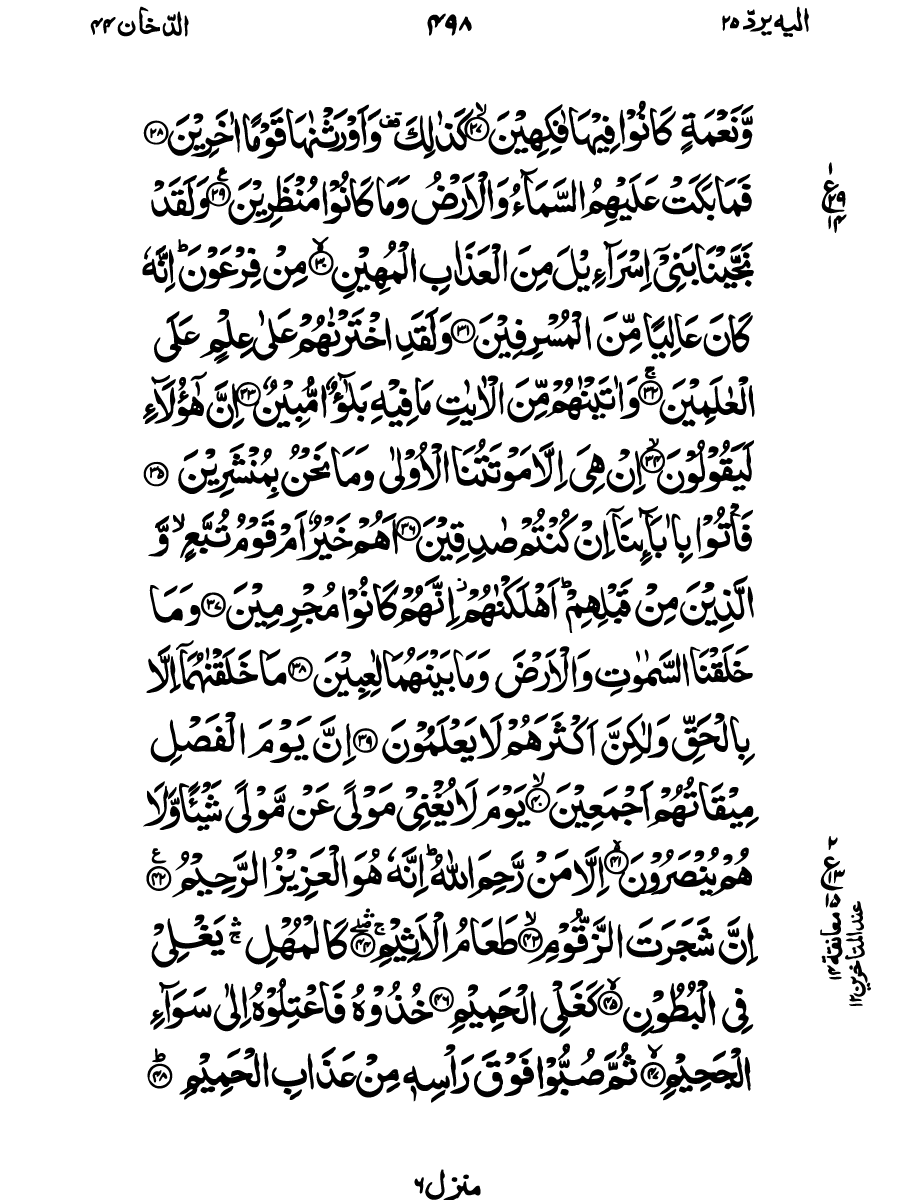 الیه یردّ ۲۵
۴۹۸
الدّخان ۴۴
وَّنَعْمَةٍ كَانُوْا فِيْهَا فٰكِهِيْنَ ۙ﴿۲۷﴾ كَذٰلِكَ ۫ وَاَوْرَثْنٰهَا قَوْمًا اٰخَرِيْنَ ﴿۲۸﴾
فَمَا بَكَتْ عَلَيْهِمُ السَّمَآءُ وَالْاَرْضُ وَمَا كَانُوْا مُنْظَرِيْنَ ﴿۲۹﴾ وَلَقَدْ
نَجَّيْنَا بَنِيْۤ اِسْرَآءِيْلَ مِنَ الْعَذَابِ الْمُهِيْنِ ﴿۳۰﴾ مِنْ فِرْعَوْنَ ؕ اِنَّهٗ
كَانَ عَالِيًا مِّنَ الْمُسْرِفِيْنَ ﴿۳۱﴾ وَلَقَدِ اخْتَرْنٰهُمْ عَلٰى عِلْمٍ عَلَى
الْعٰلَمِيْنَ ۚ﴿۳۲﴾ وَاٰتَيْنٰهُمْ مِّنَ الْاٰيٰتِ مَا فِيْهِ بَلٰٓؤٌا مُّبِيْنٌ ﴿۳۳﴾ اِنَّ هٰۤؤُلَآءِ
لَيَقُوْلُوْنَ ۙ﴿۳۴﴾ اِنْ هِيَ اِلَّا مَوْتَتُنَا الْاُوْلٰى وَمَا نَحْنُ بِمُنْشَرِيْنَ ﴿۳۵﴾
فَاْتُوْا بِاٰبَآىِٕنَاۤ اِنْ كُنْتُمْ صٰدِقِيْنَ ﴿۳۶﴾ اَهُمْ خَيْرٌ اَمْ قَوْمُ تُبَّعٍ ۙ وَّ
الَّذِيْنَ مِنْ قَبْلِهِمْ ؕ اَهْلَكْنٰهُمْ ؗ اِنَّهُمْ كَانُوْا مُجْرِمِيْنَ ﴿۳۷﴾ وَمَا
خَلَقْنَا السَّمٰوٰتِ وَالْاَرْضَ وَمَا بَيْنَهُمَا لٰعِبِيْنَ ﴿۳۸﴾ مَا خَلَقْنٰهُمَاۤ اِلَّا
بِالْحَقِّ وَلٰكِنَّ اَكْثَرَهُمْ لَا يَعْلَمُوْنَ ﴿۳۹﴾ اِنَّ يَوْمَ الْفَصْلِ
مِيْقَاتُهُمْ اَجْمَعِيْنَ ۙ﴿۴۰﴾ يَوْمَ لَا يُغْنِيْ مَوْلًى عَنْ مَّوْلًى شَيْـًٔا وَّلَا
هُمْ يُنْصَرُوْنَ ﴿۴۱﴾ اِلَّا مَنْ رَّحِمَ اللّٰهُ ؕ اِنَّهٗ هُوَ الْعَزِيْزُ الرَّحِيْمُ ﴿۴۲﴾
اِنَّ شَجَرَتَ الزَّقُّوْمِ ۙ﴿۴۳﴾ طَعَامُ الْاَثِيْمِ ﴿۴۴﴾ كَالْمُهْلِ ۛۚ يَغْلِيْ
فِي الْبُطُوْنِ ﴿۴۵﴾ كَغَلْيِ الْحَمِيْمِ ﴿۴۶﴾ خُذُوْهُ فَاعْتِلُوْهُ اِلٰى سَوَآءِ
الْجَحِيْمِ ﴿۴۷﴾ ثُمَّ صُبُّوْا فَوْقَ رَاْسِهٖ مِنْ عَذَابِ الْحَمِيْمِ ؕ﴿۴۸﴾
۱
ع
۲۹
۱۴
۲
ع
۱۳
معانقة ۱۴
عند المتاخرين ۱۲
منزل ۶